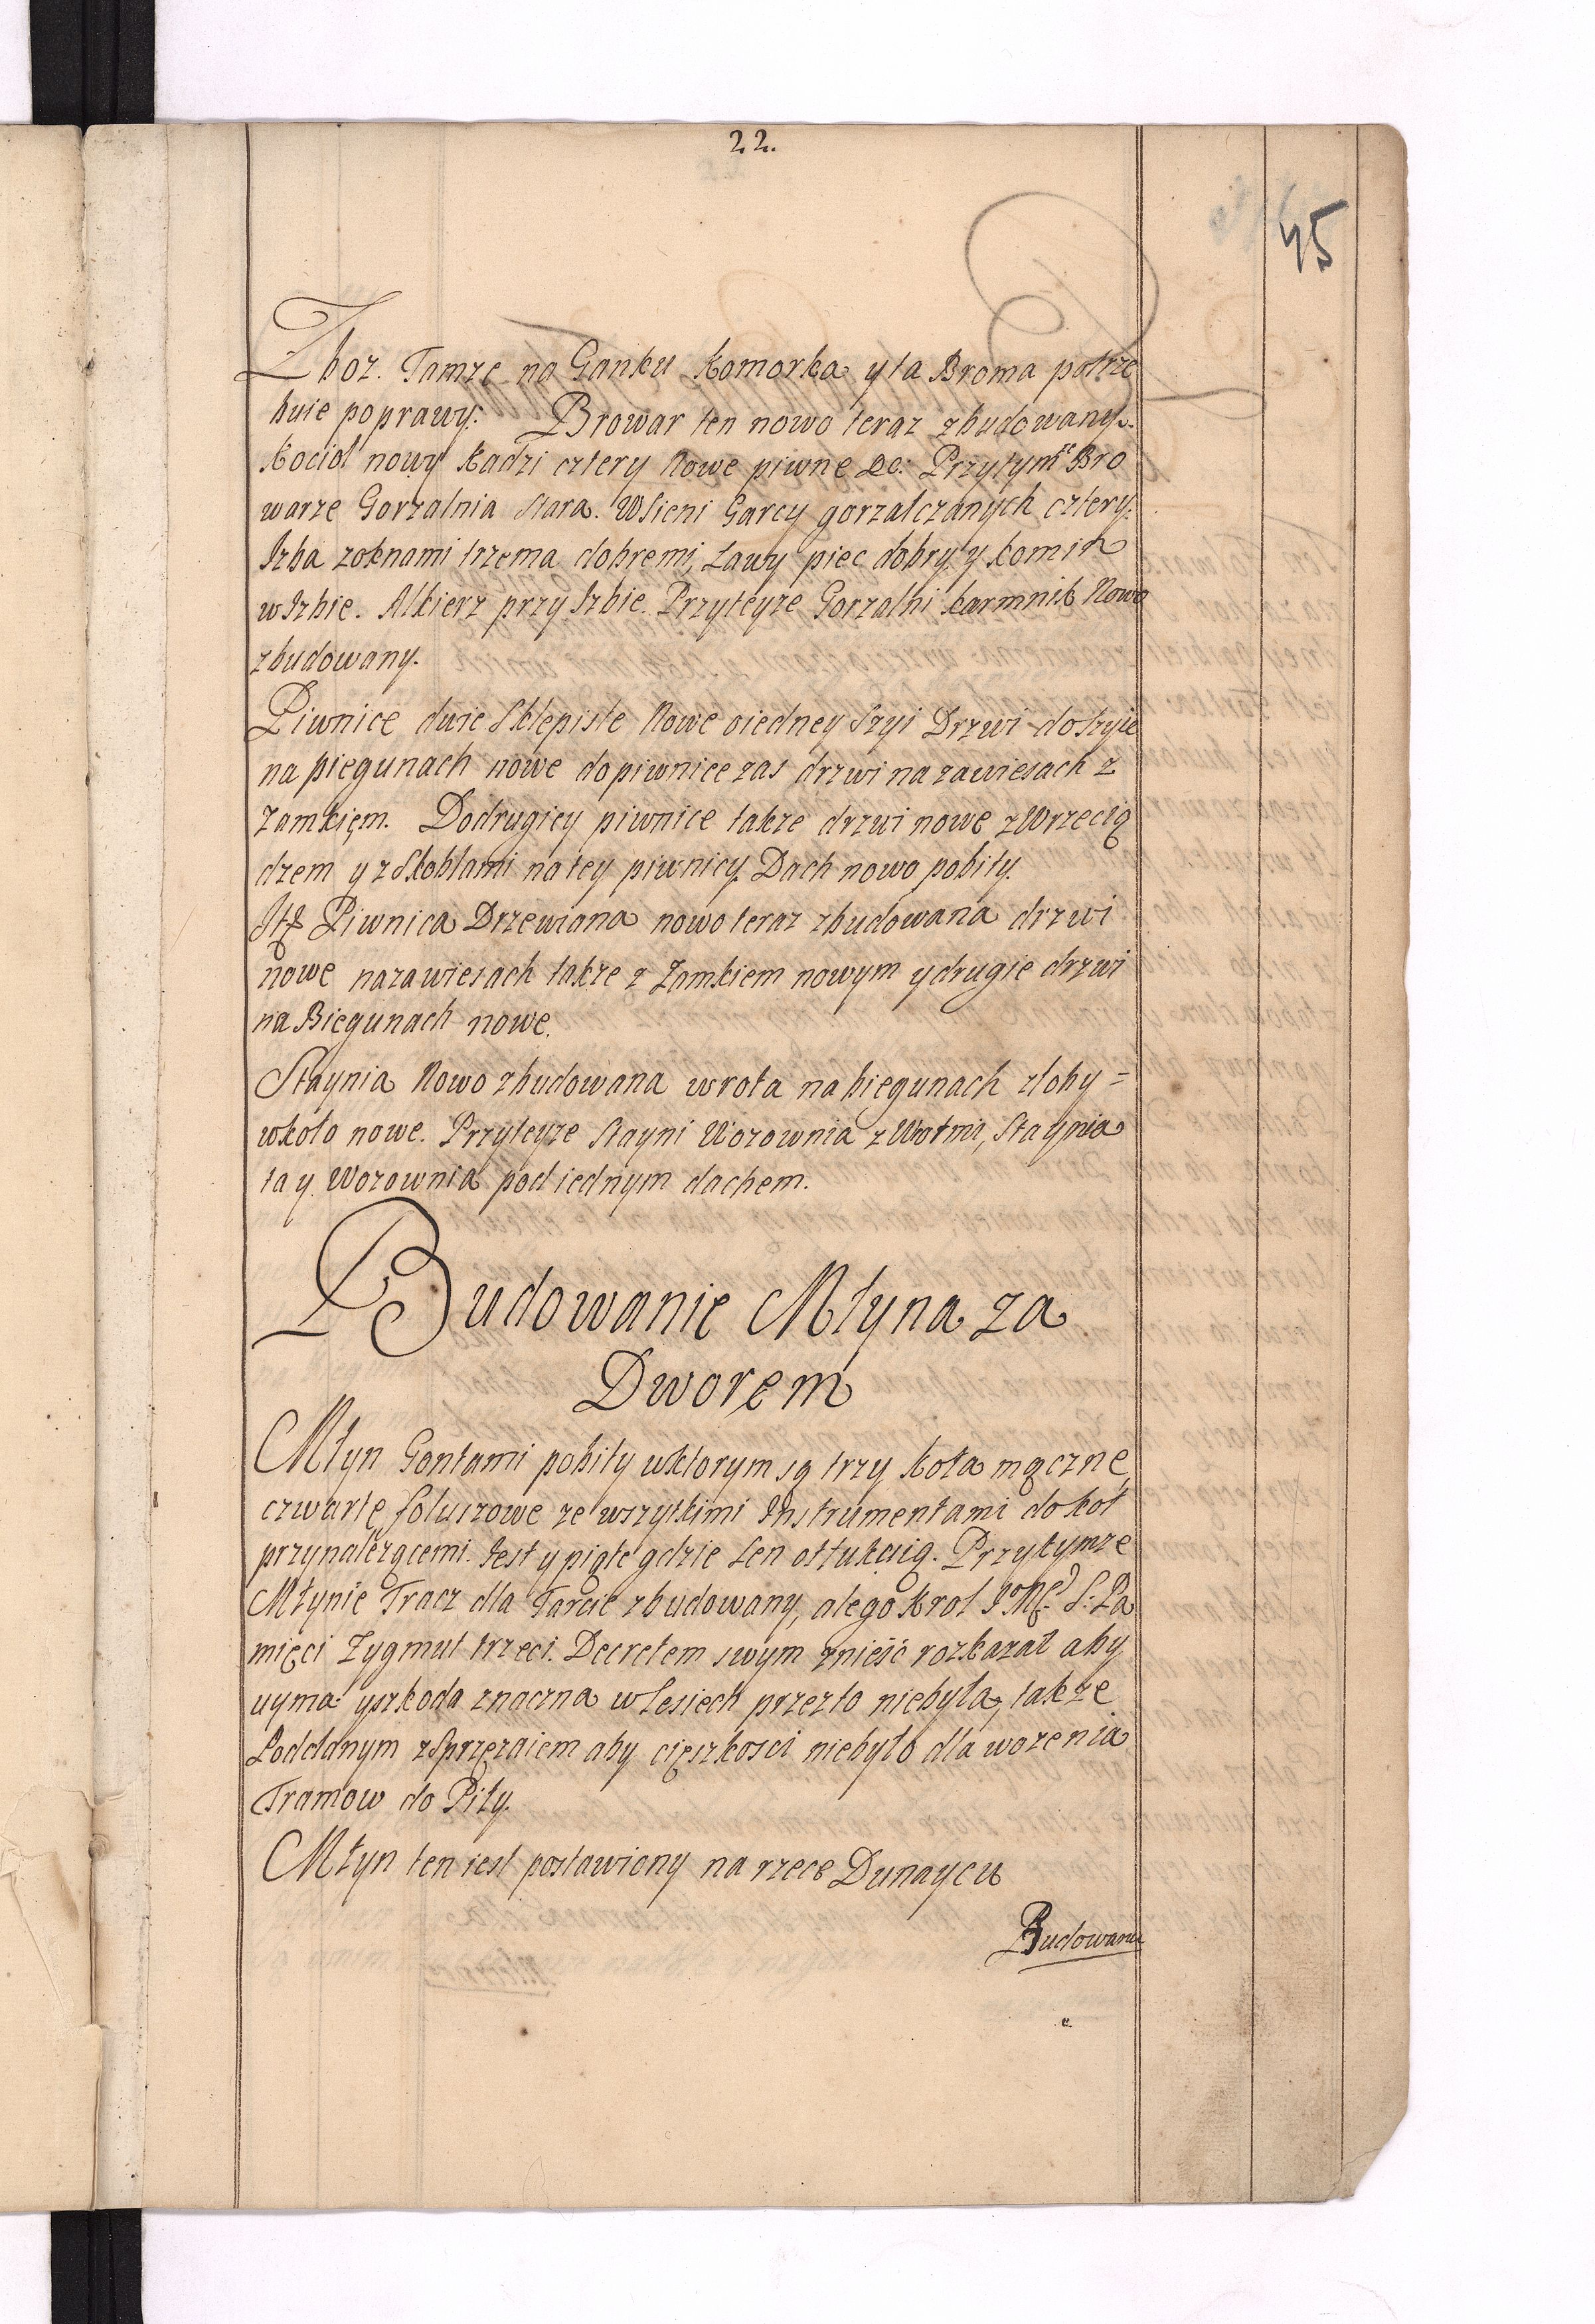 22.
45
Zboz. Tamze na Ganku Komorka y ta Broma potrze
buie poprawy. Browar ten nowo teraz zbudowany.
Kocioł nowy Kadzi cztery Nowe piwne &c: Przytymze Bro
warze Gorzalnia Stara. WSieni Garcy gorzałczanych cztery.
Izba zoknami trzema dobremi, Ławy piec dobry y komin
wIzbie. Alkierz przy Izbie. Przyteyze Gorzalni karmnik Nowo
zbudowany.
Piwnice dwie Sklepiste Nowe oiedney Szyi Drzwi doszyie
na biegunach nowe dopiwnice zas drzwi na zawiesach z
Zamkięm. Dodrugiey piwnice takze drzwi nowe zWrzecią
dzem y zSkoblami natey piwnicy. Dach nowo pobity.
Itę Piwnica Drzewiana nowo teraz zbudowana drzwi
nowe nazawiesach takze z Zamkiem nowym ydrugie drzwi
na Biegunach nowe.
Staynia Nowo zbudowana wrota na biegunach złoby =
wkoło nowe. Przyteyze Stayni Wozownia zWrotmi, Staynia
ta y Wozownia pod iednym dachem.
Budowanie Młyna za
Dworem
Młyn Gontami pobity wktorym są trzy Koła mączne,
czwarte foluszowe ze wszytkimi Instrumentami do koł
przynalezącemi. Iest y piąte gdzie Len ottukuią. Przytymze
Młynie Tracz dla Tarcic zbudowany, alego Krol S: Pa
mięci Zygmut trzeci. Decretem swym znieść rozkazał aby
uyma yszkoda znaczna wLesiech przezto niebyła, takze
Poddanym zSprzęzaiem aby cięszkosci niebyło dla wozenia
Tramow do Piły.
Młyn ten iest postawiony na rzece Dunaycu
Budowanie